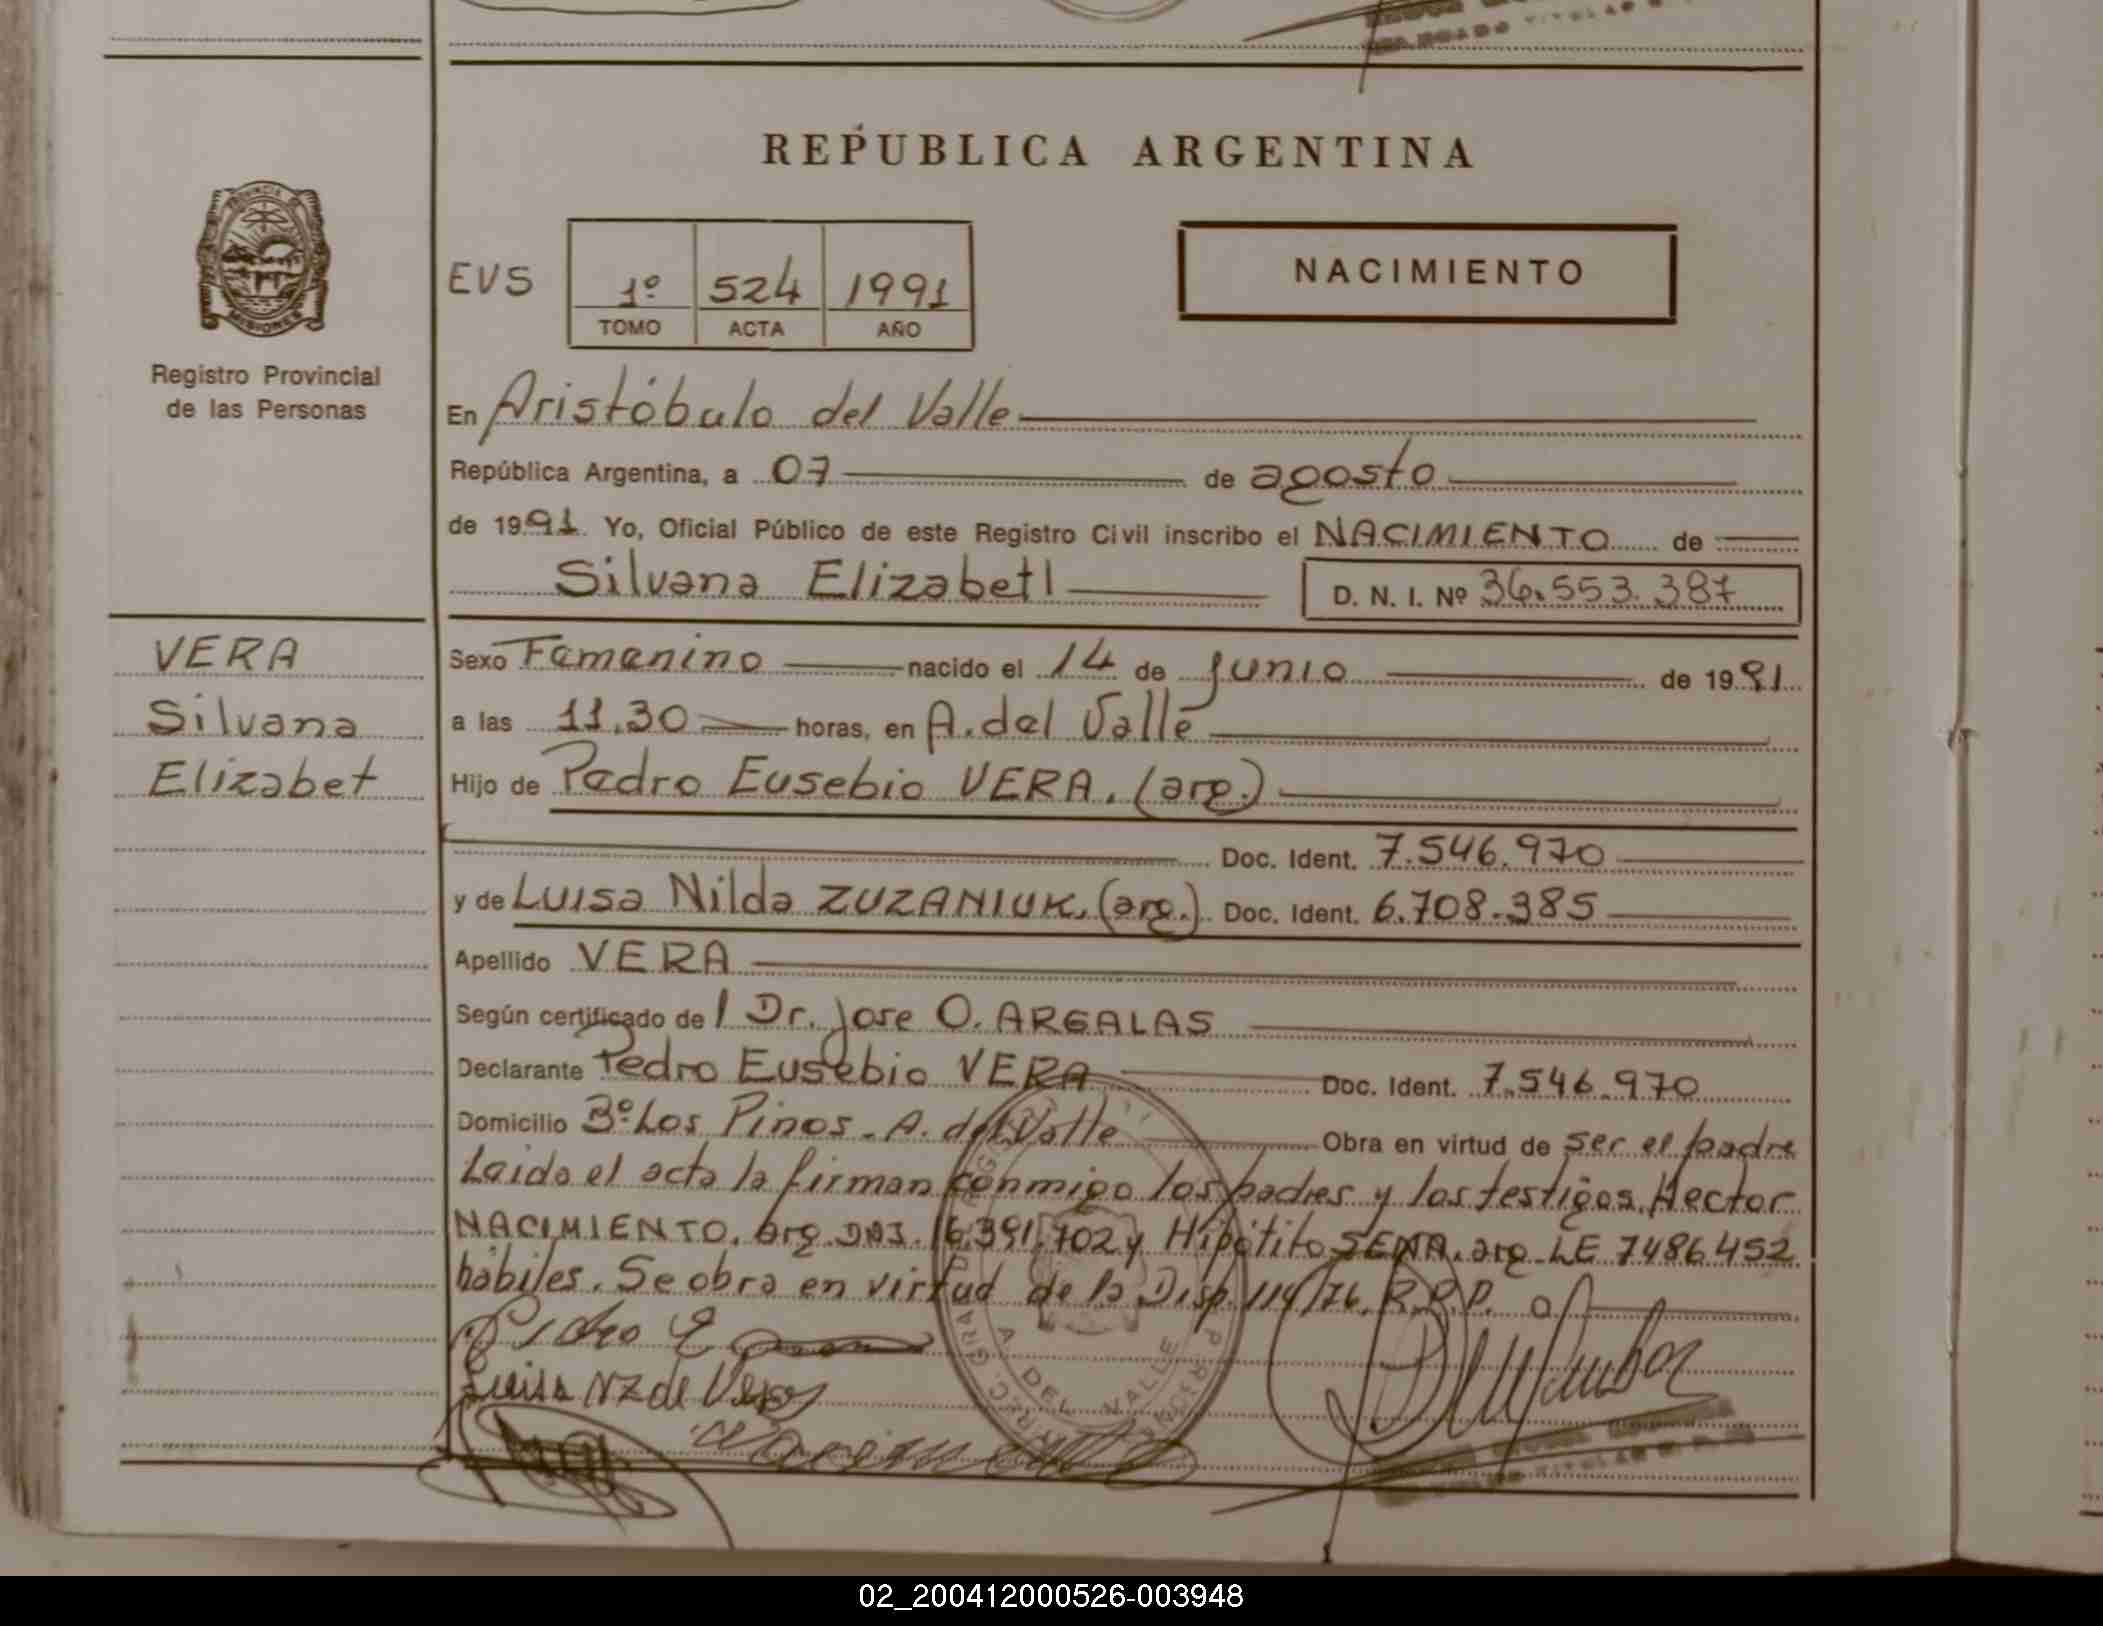 REPÚBLICA ARGENTINA
PROVINCIA DE
MISIONES
Registro Provincial
de las Personas
EVS
1º 524 1991
TOMO ACTA AÑO
NACIMIENTO
En Aristóbulo del Valle
República Argentina, a 07 de agosto
de 1991 Yo, Oficial Público de este Registro Civil inscribo el NACIMIENTO de
Silvana Elizabet
D. N. I. Nº 36.553.387
VERA
Silvana
Elizabet
Sexo Femenino nacido el 14 de Junio de 1991
a las 11.30 horas, en A. del Valle
Hijo de Pedro Eusebio VERA. (arg.)
Doc. Ident. 7.546.970
y de Luisa Nilda ZUZANIUK. (arg.) Doc. Ident. 6.708.385
Apellido VERA
Según certificado de l Dr. Jose O. ARGALAS
Declarante Pedro Eusebio VERA Doc. Ident. 7.546.970
Domicilio Bº Los Pinos - A. del Valle Obra en virtud de ser el padre
Leida el acta la firman conmigo los padres y los testigos. Hector
NACIMIENTO. arg. DNI. 16.391.702 y Hipólito SENA. arg. LE 7486452
hábiles. Se obra en virtud de la Disp. 114/76. R.P.P.
Pedro E
Luisa NZ de Vera
A DEL VALLE
TITULAR
02_200412000526-003948